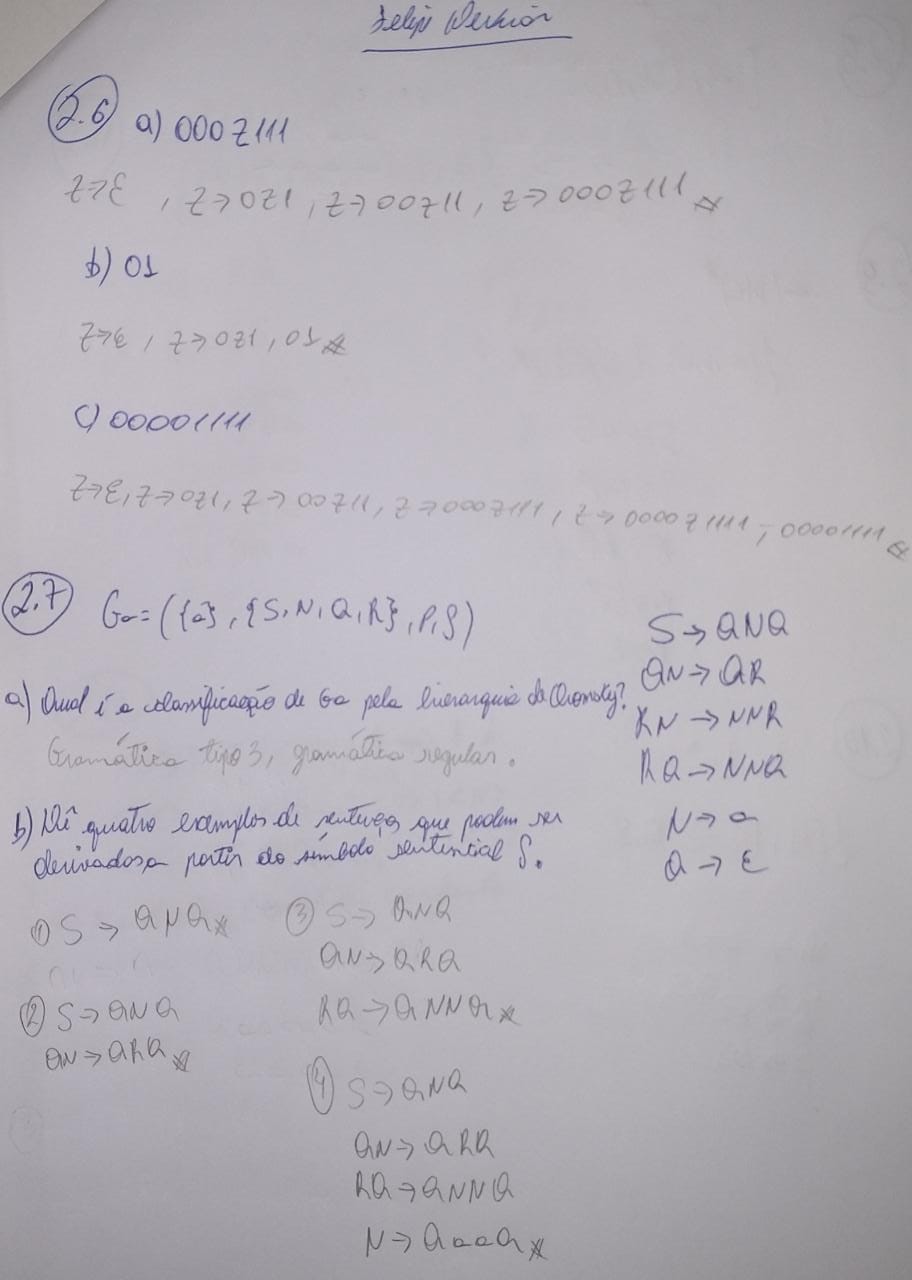 Felipe
2.6 a) 000Z111
Z→ε, Z→0Z1, Z→00Z11, Z→000Z111
b) 01
Z→ε, Z→0Z1, 01
c) 00001111
Z→ε, Z→0Z1, Z→00Z11, Z→000Z111, Z→0000Z1111, 00001111
2.7 Ga=({a},{S,N,Q,R},P,S)
S→QNQ
QN→QR
RN→NNR
RQ→NNQ
N→a
Q→ε
a) Qual é a classificação de Ga pela hierarquia de Chomsky?
Gramática tipo 3, gramática regular.
b) Dê quatro exemplos de sentenças que podem ser
derivadas a partir do símbolo sentencial S.
1) S→QNQ
2) S→QNQ
QN→QRQ
3) S→QNQ
QN→QRQ
RQ→QNNQ
4) S→QNQ
QN→QRQ
RQ→QNNQ
N→QaaQ